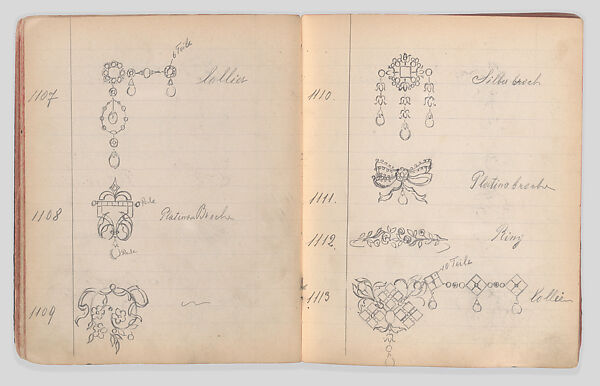 6 Teile
1107 Collier
1108 Perle Platina Broche
Perle
1109
1110. Silberbroch
1111. Platinabroche
1112. Ring
10 Teile
1113 Collier